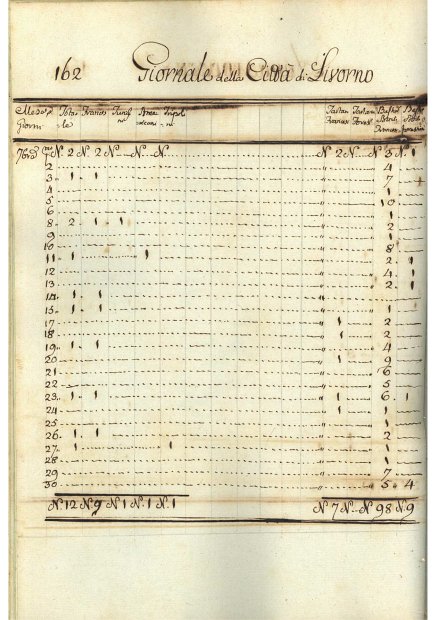 162 Giornale della Città di Livorno
Giorni le
7bre 1 N. 2 N. 2 N N N N 2 N N 3 N. 1
2 4
3 1 1 7
4 1
5 10
6 1
8 2 1 1 2
9 1
10 8
11 1 1 2 1
12 4 1
13 2 1
14 1 1
15 1 1 1
17 1 2
18 1 2
19 1 1 4
20 1 9
21 6
22 5
23 1 1 1 6 1
24 1 1
25 1
26 1 1 2
27 1 1 1
28 1
29 7
30 5 4
N. 12 N. 9 N 1 N. 1 N. 1 N 7 N N 98 N. 9